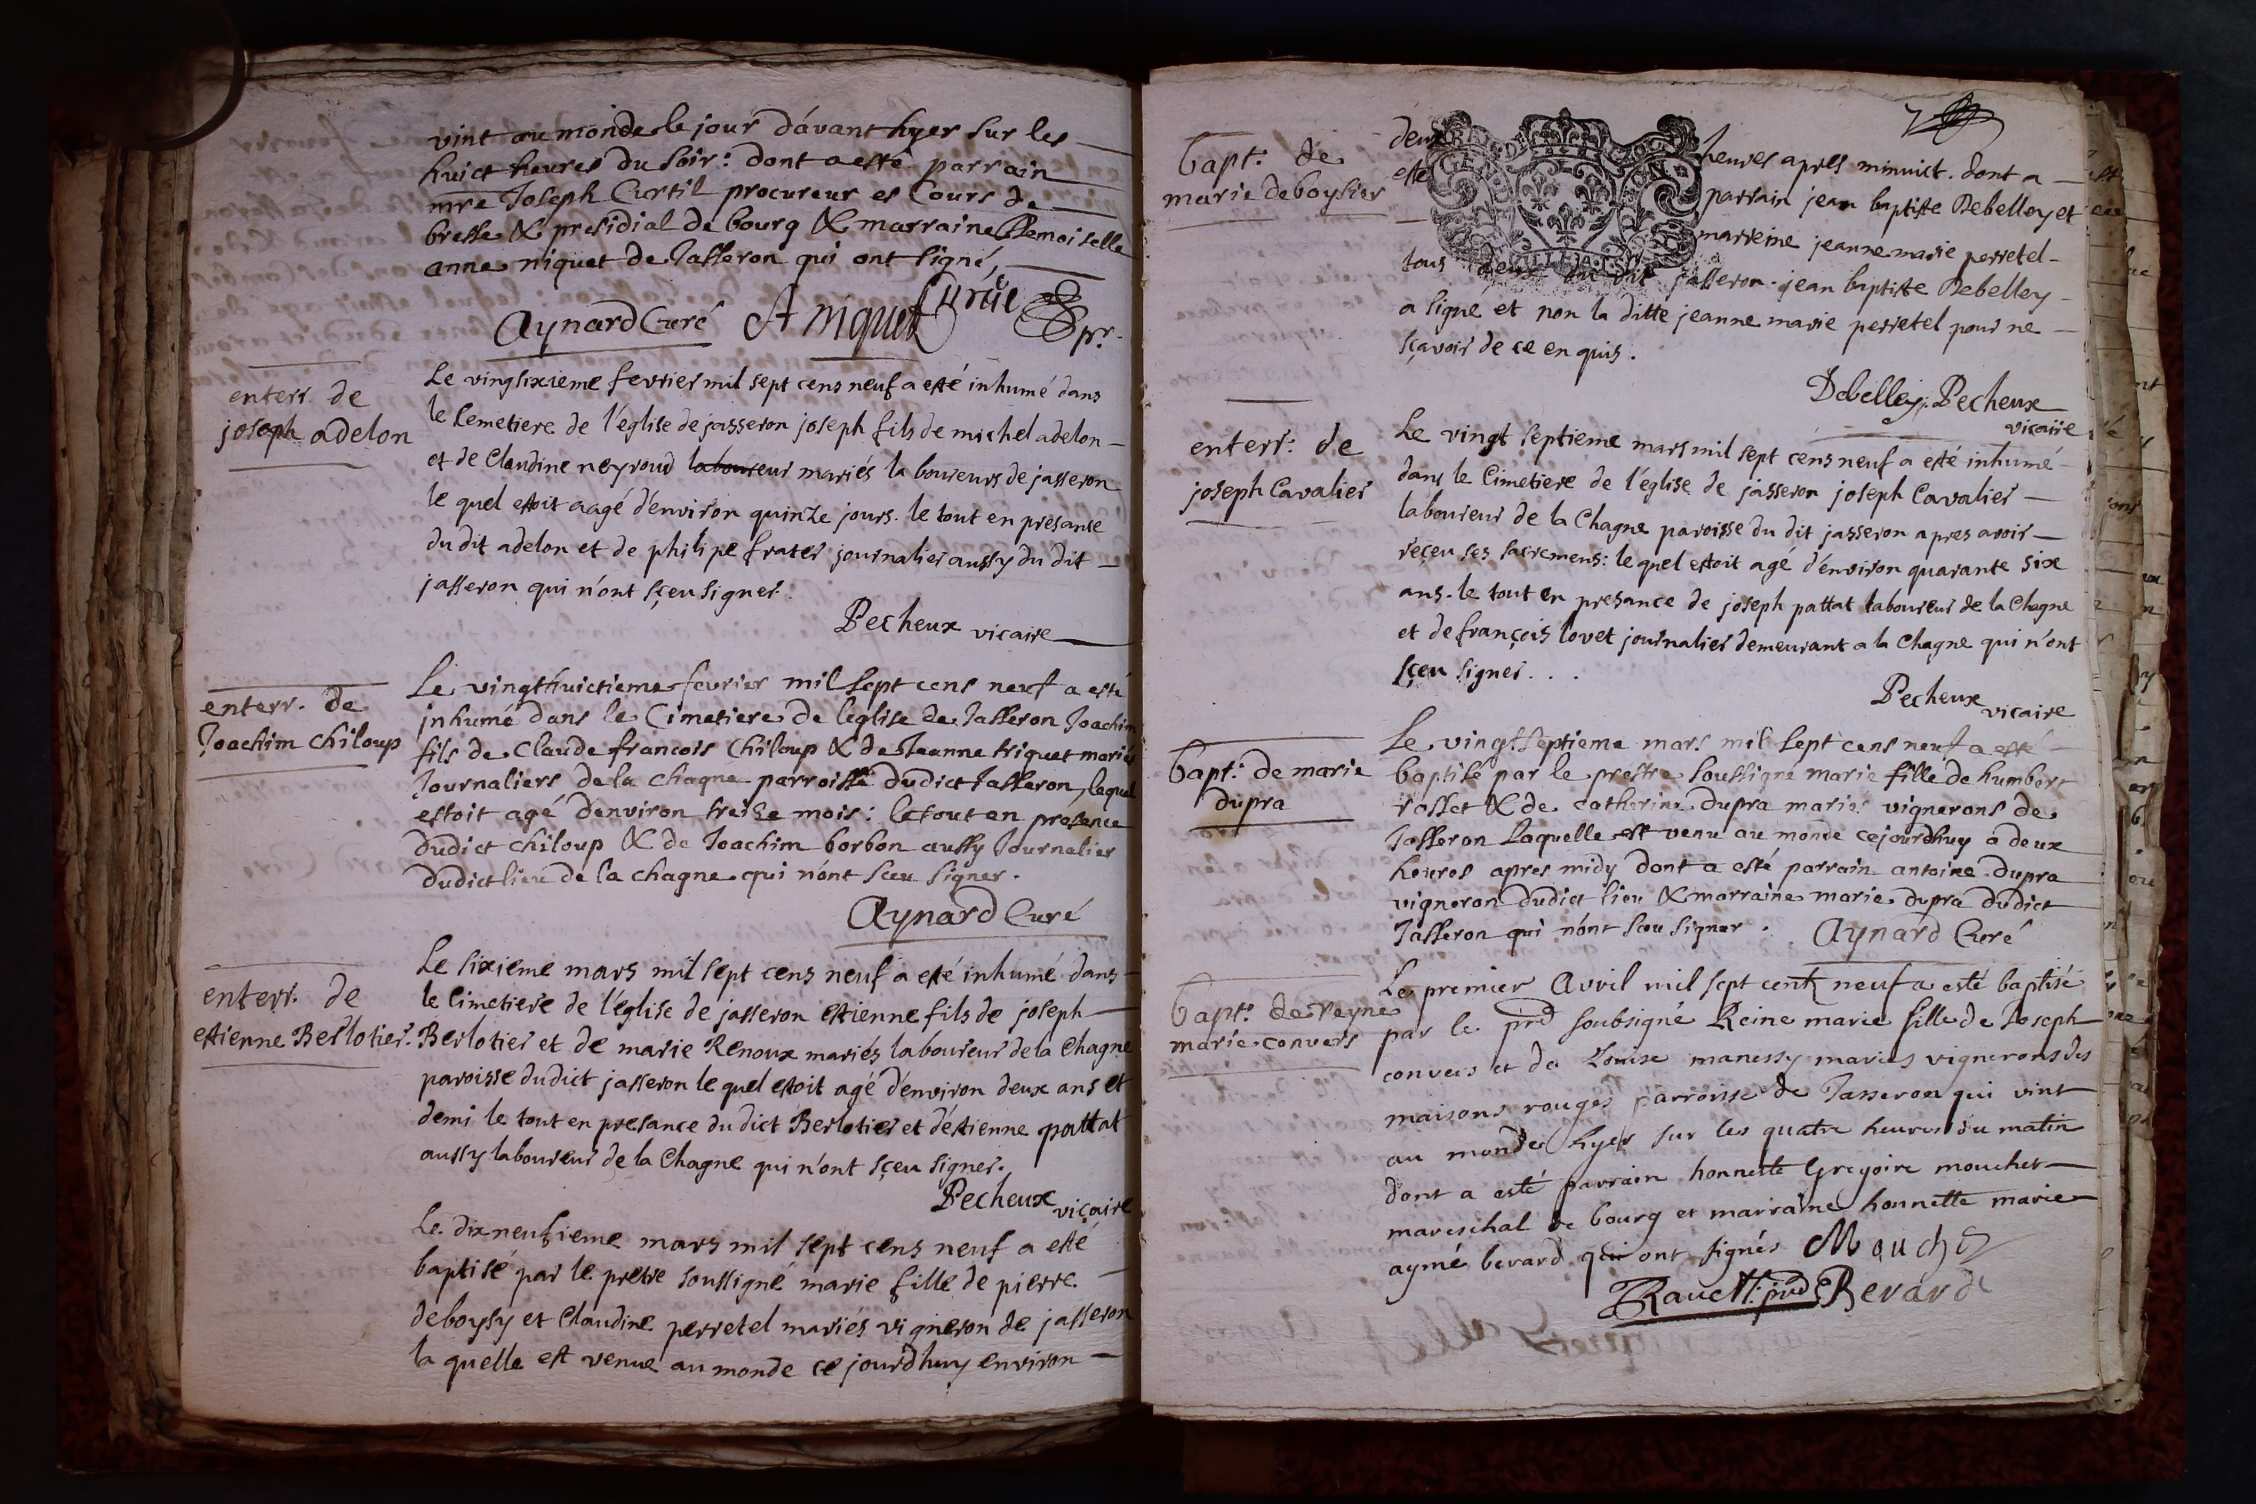 vint au monde le jour d'avant hyer sur les
huict heures du soir : dont a esté parrain
mre Joseph Curtil procureur es Cours de
bresse & presidial de bourg & marraine Demoiselle
anne niquet de Jasseron qui ont signé,
Aynard Curé A niquet Curtil pr.
enterr. de
joseph adelon
Le vingsixieme fevrier mil sept cens neuf a esté inhumé dans
le Cemetiere de l'église de jasseron joseph fils de michel adelon
et de Claudine neyroud laboureur mariés laboureurs de jasseron
le quel estoit aagé d'environ quinze jours. le tout en presance
du dit adelon et de philipe frater journalier aussy du dit
jasseron qui n'ont sçeu signer.
Pecheux vicaire
enterr. de
Joachim chiloup
Le vingthuictieme fevrier mil sept cens neuf a esté
inhumé dans le Cimetiere de leglise de Jasseron Joachim
fils de Claude francois Chiloup & de Jeanne triquet mariés
Journaliers de la chagne parroisse dudict Jasseron, lequel
estoit agé d'environ treize mois : le tout en presence
dudict chiloup & de Joachim borbon aussy Journalier
dudict lieu de la chagne qui n'ont sceu signer.
Aynard Curé
enterr. de
estienne Berlotier.
Le sixieme mars mil sept cens neuf a esté inhumé dans
le Cimetiere de l'église de jasseron estienne fils de joseph
Berlotier et de marie Renoux mariés laboureur de la Chagne
paroisse dudict jasseron le quel estoit agé d'environ deux ans et
demi le tout en presance du dict Berlotier et d'éstienne pattat
aussy laboureur de la Chagne qui n'ont sçeu signer.
Pecheux viçaire
Le dixneufieme mars mil sept cens neuf a esté
baptisé par le pretre soussigné marie fille de pierre
deboysy et Claudine perretel mariés vigneron de jasseron
la quelle est venue au monde ce jourdhuy environ
7
bapt. de
marie deboysier
deux heures apres minuict. dont a
esté parrain jean baptiste Debelley et
marreine jeanne marie perretel
tous deux du dit jasseron. jean baptiste Debelley
a signé et non la ditte jeanne marie perretel pour ne
sçavoir de ce enquis.
Debelley. Pecheux
vicaire
enterr. de
joseph Cavalier
Le vingt septieme mars mil sept cens neuf a esté inhumé
dans le Cimetiere de l'église de jasseron joseph Cavalier
laboureur de la Chagne paroisse du dit jasseron apres avoir
reçeu ses sacremens : le quel estoit agé d'environ quarante six
ans. le tout en presance de joseph pattat laboureur de la Chagne
et de françois lovet journalier demeurant a la Chagne qui n'ont
sçeu signer...
Pecheux vicaire
bapt. de marie
dupra
Le vingtseptieme mars mil sept cens neuf a esté
baptisé par le prestre soussigné marie fille de humbert
rosset & de catherine dupra mariés vignerons de
Jasseron Laquelle est venu au monde cejourdhuy a deux
heures apres midy dont a esté parrain antoine dupra
vigneron dudict lieu & marraine marie dupra dudict
Jasseron qui n'ont sceu signer. Aynard Curé
bapt. de reyne
marie convers
Le premier Avril mil sept centz neuf a esté baptisé
par le soubsigné Reine marie fille de Joseph
convers et de Louise manessy mariés vignerons des
maisons rouges parroisse de Jasseron qui vint
au monde hyer sur les quatre heures du matin
dont a esté parrain honneste Gregoire mouchet
mareschal de bourg et marraine honnette marie
aymé berard qui ont signés Mouchet
Ravet Berard